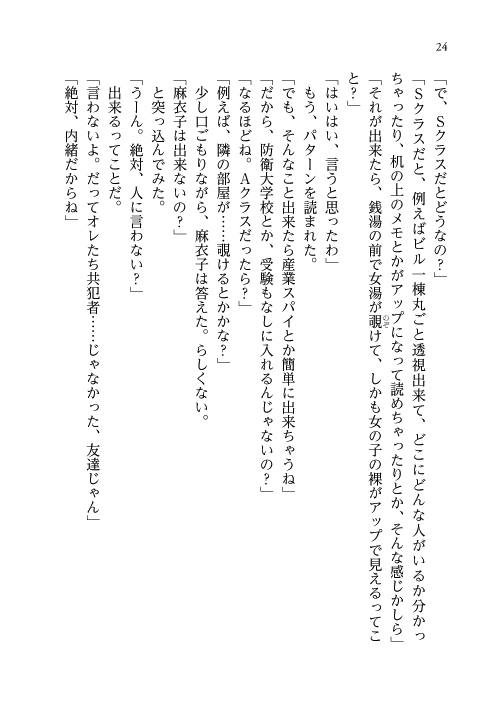 24
「で、Sクラスだとどうなの？」
「Sクラスだと、例えばビル一棟丸ごと透視出来て、どこにどんな人がいるか分かっ
ちゃったり、机の上のメモとかがアップになって読めちゃったりとか、そんな感じかしら」
「それが出来たら、銭湯の前で女湯が覗けて、しかも女の子の裸がアップで見えるってこ
のぞ
と？」
「はいはい、言うと思ったわ」
もう、パターンを読まれた。
「でも、そんなこと出来たら産業スパイとか簡単に出来ちゃうね」
「だから、防衛大学校とか、受験もなしに入れるんじゃないの？」
「なるほどね。Aクラスだったら？」
「例えば、隣の部屋が……覗けるとかかな？」
少し口ごもりながら、麻衣子は答えた。らしくない。
「麻衣子は出来ないの？」
と突っ込んでみた。
「うーん。絶対、人に言わない？」
出来るってことだ。
「言わないよ。だってオレたち共犯者……じゃなかった、友達じゃん」
「絶対、内緒だからね」